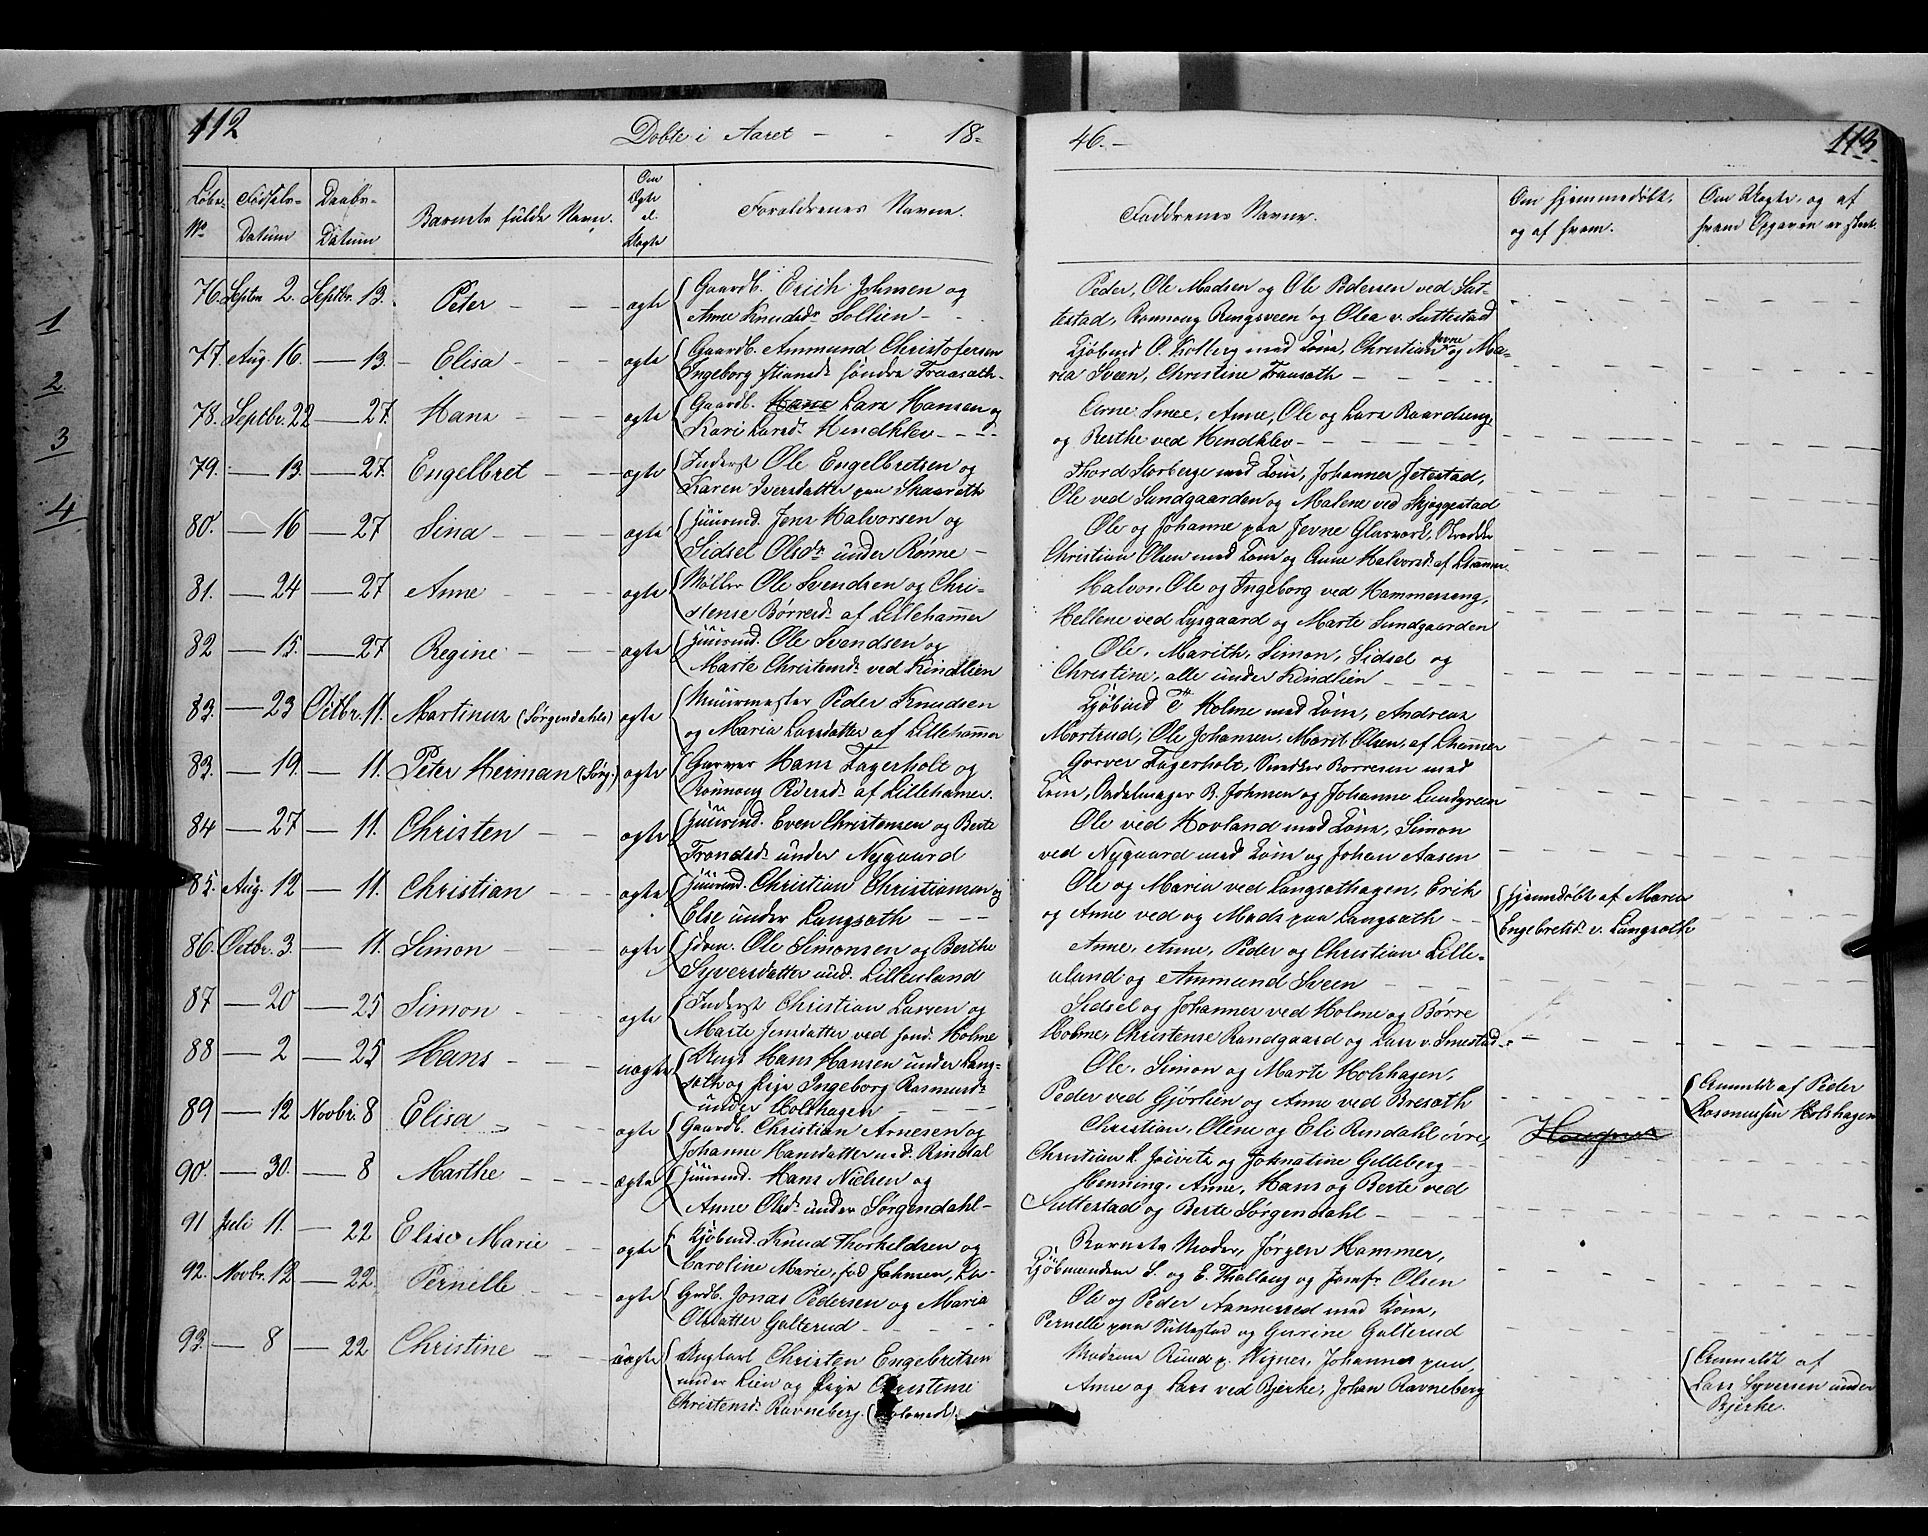 112
Döbte i Aaret - - 18-
Løbe- No
Fødsels- Datum
Daabs- Datum
Barnets fulde Navn.
Om Ægte el. Uægte
Forældrenes Navne.
76. Septbr 2. Septbr. 13. Peter - - - ægte Gaardb. Erich Johnsen og
Anne Knudsdr. Sollien - -
77. Aug. 16. — 13. - Elisa - - - ægte Gaardb. Ammund Christofersen
Ingeborg søndre Traasæth-
78. Septbr. 22 — 27. Hans - - ægte Gaardb. Hans Lars Hansen og
Kari Larsd. Hindklev - - -
79. — 13. — 27. Engelbret - - ægte Inderst Ole Engelbretsen og
Karen Iversdatter paa Skaaræth
80. — 16 — 27 Sina - - - ægte Huusmd. Jens Halvorsen og
Sidsel Olsdr. under Rønne -
81. — 24 — 27 Anne - - - ægte Møller Ole Svendsen og Chri-
stense Børresd. af Lillehammer
82 — 15. — 27 Regine - - - ægte Huusmd. Ole Svendsen og
Marte Christensd. ved Kindlien
83. — 23 Octbr. 11. Martinus (Sørgendahls) ægte Muurmester Peder Knudsen
og Maria Larsdatter af Lillehammer
83. — 19. — 11. Peter Herman (Sørg.) ægte Garver Hans Fagerholt og
Rönnoug Pedersd. af Lillehammer.
84 — 27 — 11. Christen - - ægte Huusmd. Even Christensen og Berte
Trondsd. under Nygaard
85. Aug. 12 — 11. Christian - - - ægte Huusmd. Christian Christiansen og
Else under Langsæth - - -
86. Octbr. 3. — 11. Simon ægte Ole Simonsen og Berthe
Syversdatter und. Lilleuland
87 — 20 — 25 Simon - - - ægte Inderst Christian Larsen og
Marte Jensdatter ved sønd. Holme
88 — 2 — 25 Hans - - - uægte Ungk. Hans Hansen under Lang-
sæth og Pige Ingeborg Rasmusd.
under Holshagen - - -
89 — 12 Novbr. 8 Elisa - - ægte Gaardb. Christian Arnesen og
Johanne Hansdatter ned. Rindal
90. — 30. — 8 Marthe - - - ægte Huusmd. Hans Nielsen og
Anne Olsd. under Sørgendahl-
91 Juli 11. — 22 Elise Marie - ægte Kjøbmd. Knud Thorkeldsen og
Caroline Marie, fød Johnsen,
92. Novbr. 12 — 22. Pernille - - ægte Grdb. Jonas Pedersen og Maria
Olsdatter Galterud - - - -
93. — 8 — 22 Christine - - uægte Ungkarl Christen Engebretsen
under Lien og Pige Christense
Christensd. Ravneberg.
46. -
113.
Faddrenes Navne.
Om hjemmedøbt,
og af hvem.
Om Uægte, og af
hvem Opgaven er skeet.
Peder, Ole Madsen og Ole Pedersen ved Sut-
testad, Ronnoug Ringsveen og Olea v. Suttestad
Kjøbmd O. Kolberg med Kone, Christian Jevne og Ma-
ria Sveen, Christine Traasæth - - -
Arne Smee, Anne, Ole og Lars Baardseng
og Berthe ved Hindklev - - - -
Thord Storberge med Kone, Johannes Jetestad,
Ole ved Sundgaarden og Malene ved Skjæggestad
Ole og Johanne paa Jevne Glasværk, Skrædder
Christian Olsen med Kone og Anne Halvorsd. af Lhammer.
Halvor, Ole og Ingeborg ved Hammerseng,
Hellene ved Lysgaard og Marte Sundgaarden
Ole, Marith, Simon, Sidsel og
Christine, alle under Kindlien - - -
Kjøbmd T. Holme med Kone, Andreas
Mortrud, Ole Johansen, Marit Olsen, af Lhammer
Garver Fagerholt, Snedker Borresen med
Kone, Sadelmager B. Johnsen og Johanne Lundgreen
Ole ved Hovland med Kone, Simon
ved Nygaard med Kone og Johan Aasen
Ole og Maria ved Langsæthagen, Erik
og Anne ved og Mads paa Langsæth - -
Hjemdøbt af Maria
Engebretsd. v. Langsæth
Anne, Anne, Peder og Christian Lille-
uland og Ammund Sveen - - -
Sidsel og Johannes ved Holme og Børre
Holme, Christense Randgaard og Lars v. Smestad.
Ole, Simon og Marte Holshagen,
Peder ved Gjørlien og Anne ved Bresæth
Anmeldt af Peder
Rasmussen Holshagen
Christian, Olene og Eli Rindahl øvre,
Christian L. og Johnatine Gilleberg
Henning, Anne, Hans og Berte ved
Suttestad og Berte Sørgendahl -
Barnets Moder, Jørgen Hammer,
Kjøbmændene S. og E. Thallaug og Jomfr. Olsen
Ole og Peder Aannerud med Kone,
Pernelle paa Suttestad og Gurine Galterud
Madsene Ruud p. Vignes, Johannes paa,
Anne og Lars ved Bjerke, Johan Ravneberg
Anmeldt af
Lars Syversen under
Bjerke.
1
2
3
4